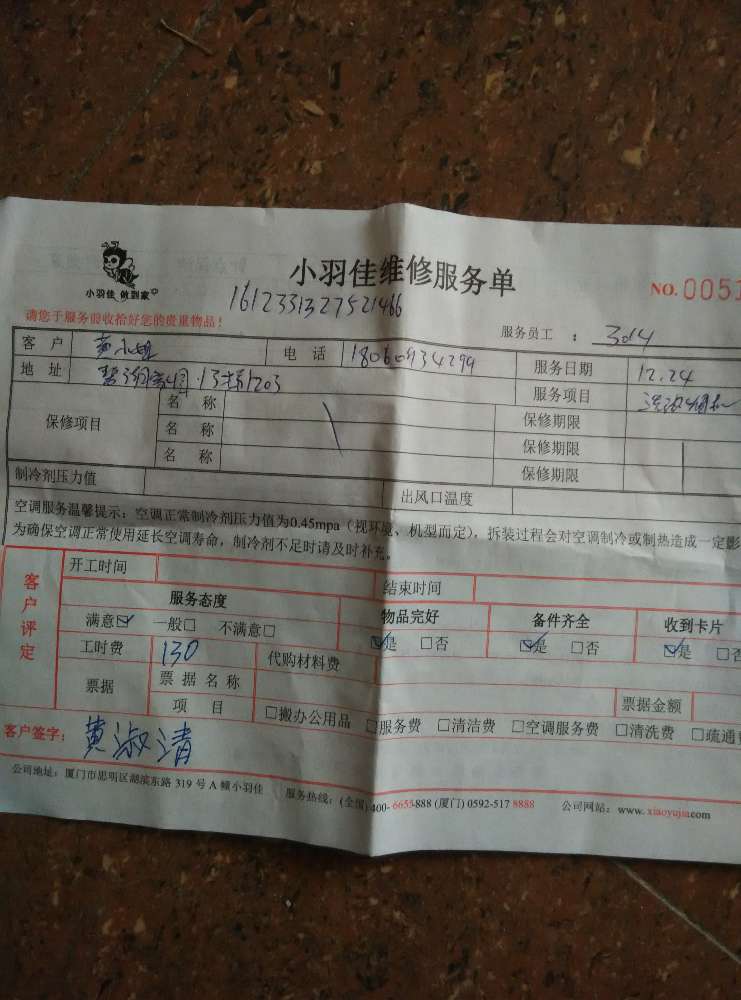 小羽佳 做到家
小羽佳维修服务单
NO. 0053
1612331327521466
请您于服务前收拾好您的贵重物品！
服务员工 ： 3014
客 户 黄小姐 电 话 18060934299 服务日期 12.24
地 址 13栋1203 服务项目
保修项目 名 称 保修期限
名 称 保修期限
名 称 保修期限
制冷剂压力值 出风口温度
空调服务温馨提示：空调正常制冷剂压力值为0.45mpa（视环境、机型而定），拆装过程会对空调制冷或制热造成一定影
为确保空调正常使用延长空调寿命，制冷剂不足时请及时补充。
客户评定 开工时间 结束时间
服务态度 物品完好 备件齐全 收到卡片
满意☑ 一般□ 不满意□ ☑是 □否 ☑是 □否 ☑是 □否
工时费 130 代购材料费
票据 票 据 名 称 票据金额
项 目 □搬办公用品 □服务费 □清洁费 □空调服务费 □清洗费 □疏通费
客户签字： 黄淑清
公司地址：厦门市思明区湖滨东路 319 号 A 幢小羽佳 服务热线：(全国)400-6655-888 (厦门) 0592-517 8888 公司网站：www. xiaoyujia.com